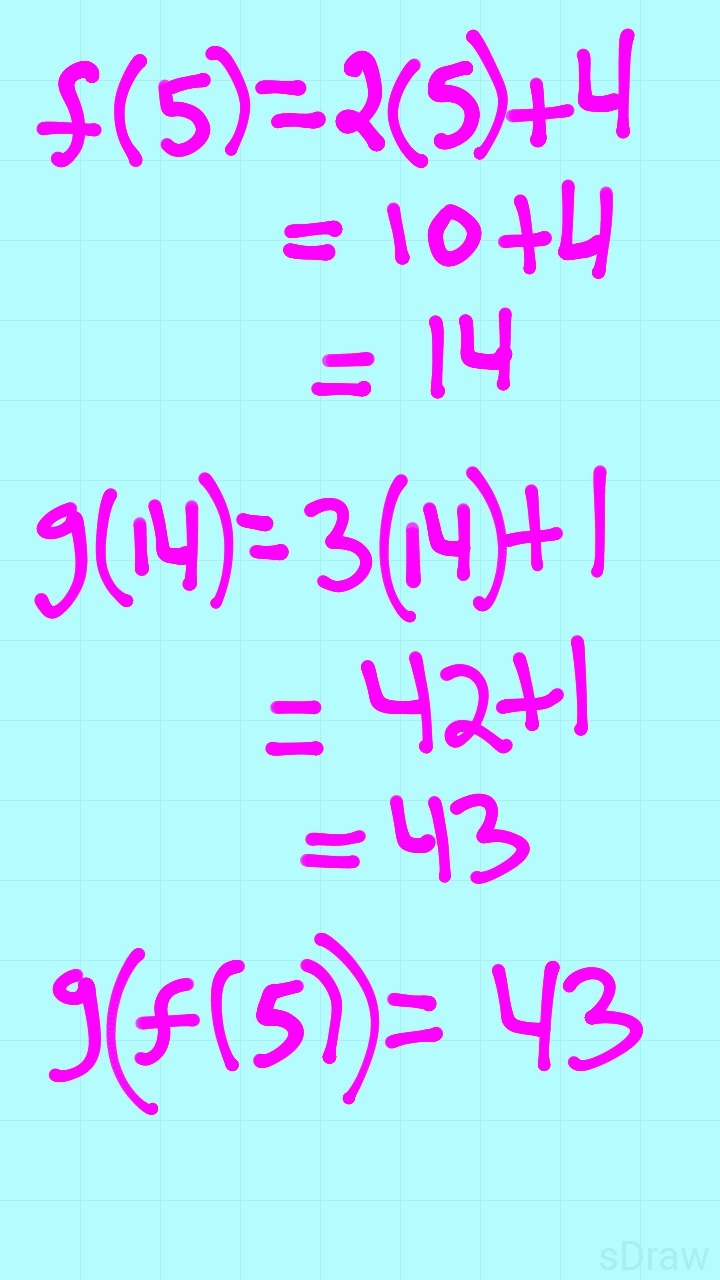 f(5)=2(5)+4
= 10+4
= 14
g(14)=3(14)+1
= 42+1
= 43
g(f(5))= 43
sDraw